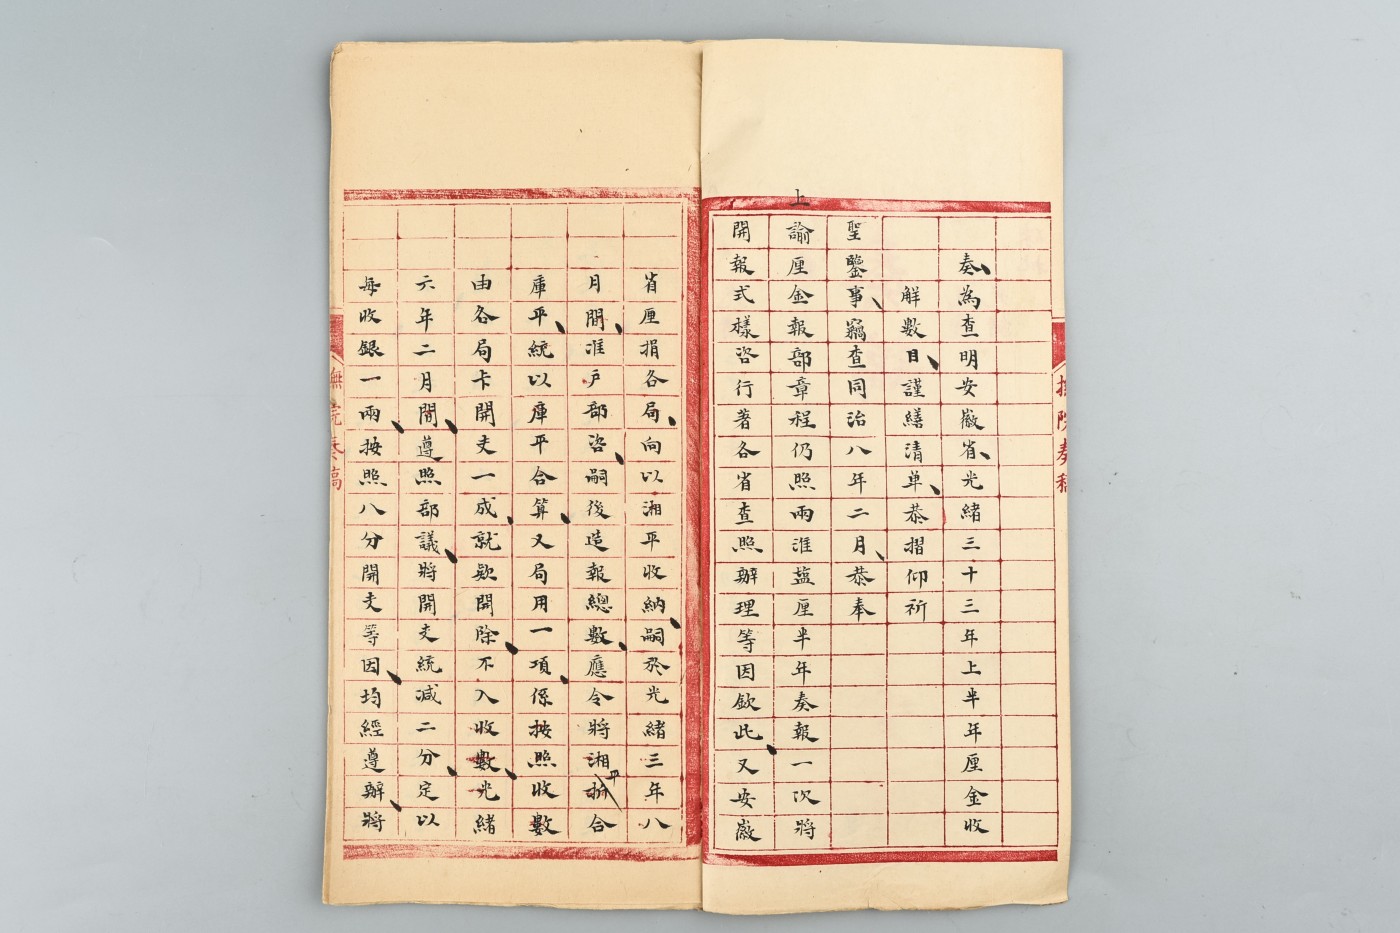 撫院奏稿
奏、為查明安徽省、光緒三十三年上半年厘金收
解數目、謹繕清单、恭摺仰祈
聖鑒事、竊查同治八年二月、恭奉
上諭厘金報部章程仍照兩淮盐厘半年奏報一次將
開報式樣咨行著各省查照辦理等因欽此、又安徽
省厘捐各局、向以湘平收納、嗣於光緒三年八
月間、准戶部咨、嗣後造報總數、應令將湘平合
庫平、統以庫平合算、又局用一項、係按照收數
由各局卡開支一成、就欵開除、不入收數、光緒
六年二月間、遵照部議、將開支統減二分、定以
每收銀一兩、按照八分開支等因、均經遵辦、將
撫院奏稿